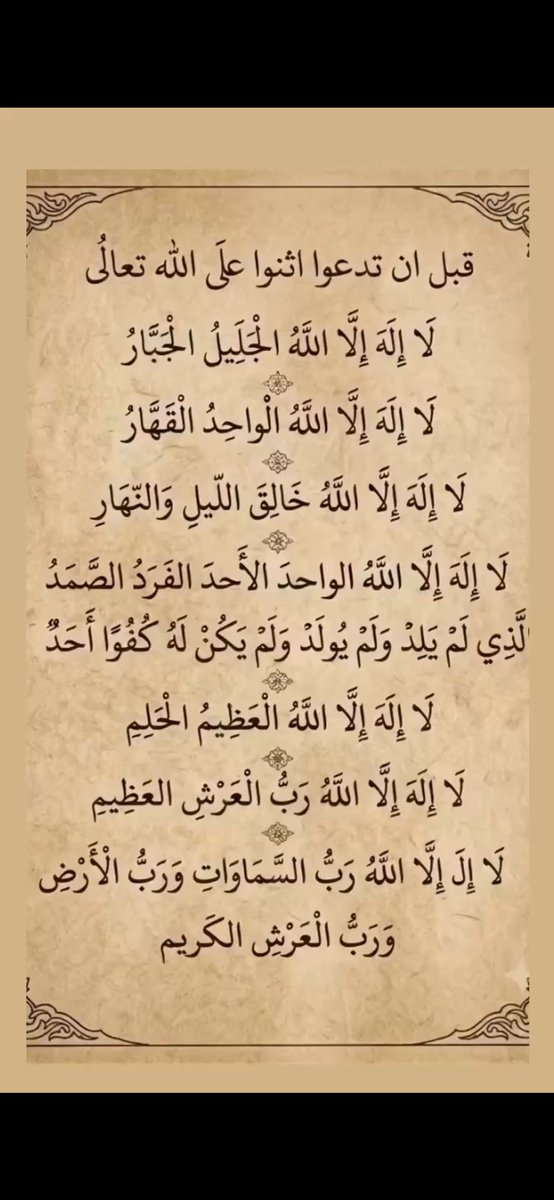 قبل ان تدعوا اثنوا علَى الله تعالُى
لَا إِلَهَ إِلَّا اللَّهُ الْجَلِيلُ الْجَبَّارُ
لَا إِلَهَ إِلَّا اللَّهُ الْواحِدُ الْقَهَّارُ
لَا إِلَهَ إِلَّا اللَّهُ خَالِقَ اللّيلِ وَالنّهَارِ
لَا إِلَهَ إِلَّا اللَّهُ الواحدَ الأَحدَ الفَرَدُ الصَّمَدُ
الَّذِي لَمْ يَلِدْ وَلَمْ يُولَدْ وَلَمْ يَكُنْ لَهُ كُفُوًا أَحَدٌ
لَا إِلَهَ إِلَّا اللَّهُ الْعَظِيمُ الْحَلِمِ
لَا إِلَهَ إِلَّا اللَّهُ رَبُّ الْعَرْشِ العَظِيمِ
لَا إِلَ إِلَّا اللَّهُ رَبُّ السَّمَاوَاتِ وَرَبُّ الْأَرْضِ
وَرَبُّ الْعَرْشِ الكَريم